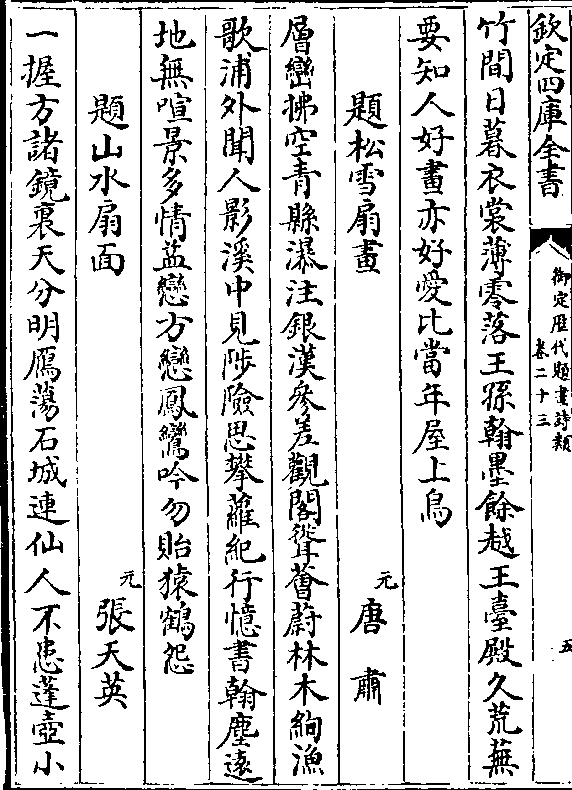 欽定四庫全書
御定歷代題畫詩類
卷二十三
五
竹間日暮衣裳薄零落王孫翰墨餘越王臺殿久荒蕪
要知人好畫亦好愛比當年屋上烏
題松雪扇畫
元
唐肅
層巒拂空青縣瀑注銀漢參差觀閣聳薈蔚林木絢漁
歌浦外聞人影溪中見陟險思攀蘿紀行憶書翰塵遠
地無喧景多情益戀方戀鳳鸞吟勿貽猿鶴怨
題山水扇面
元
張天英
一握方諸鏡裏天分明鴈蕩石城連仙人不患蓬壺小